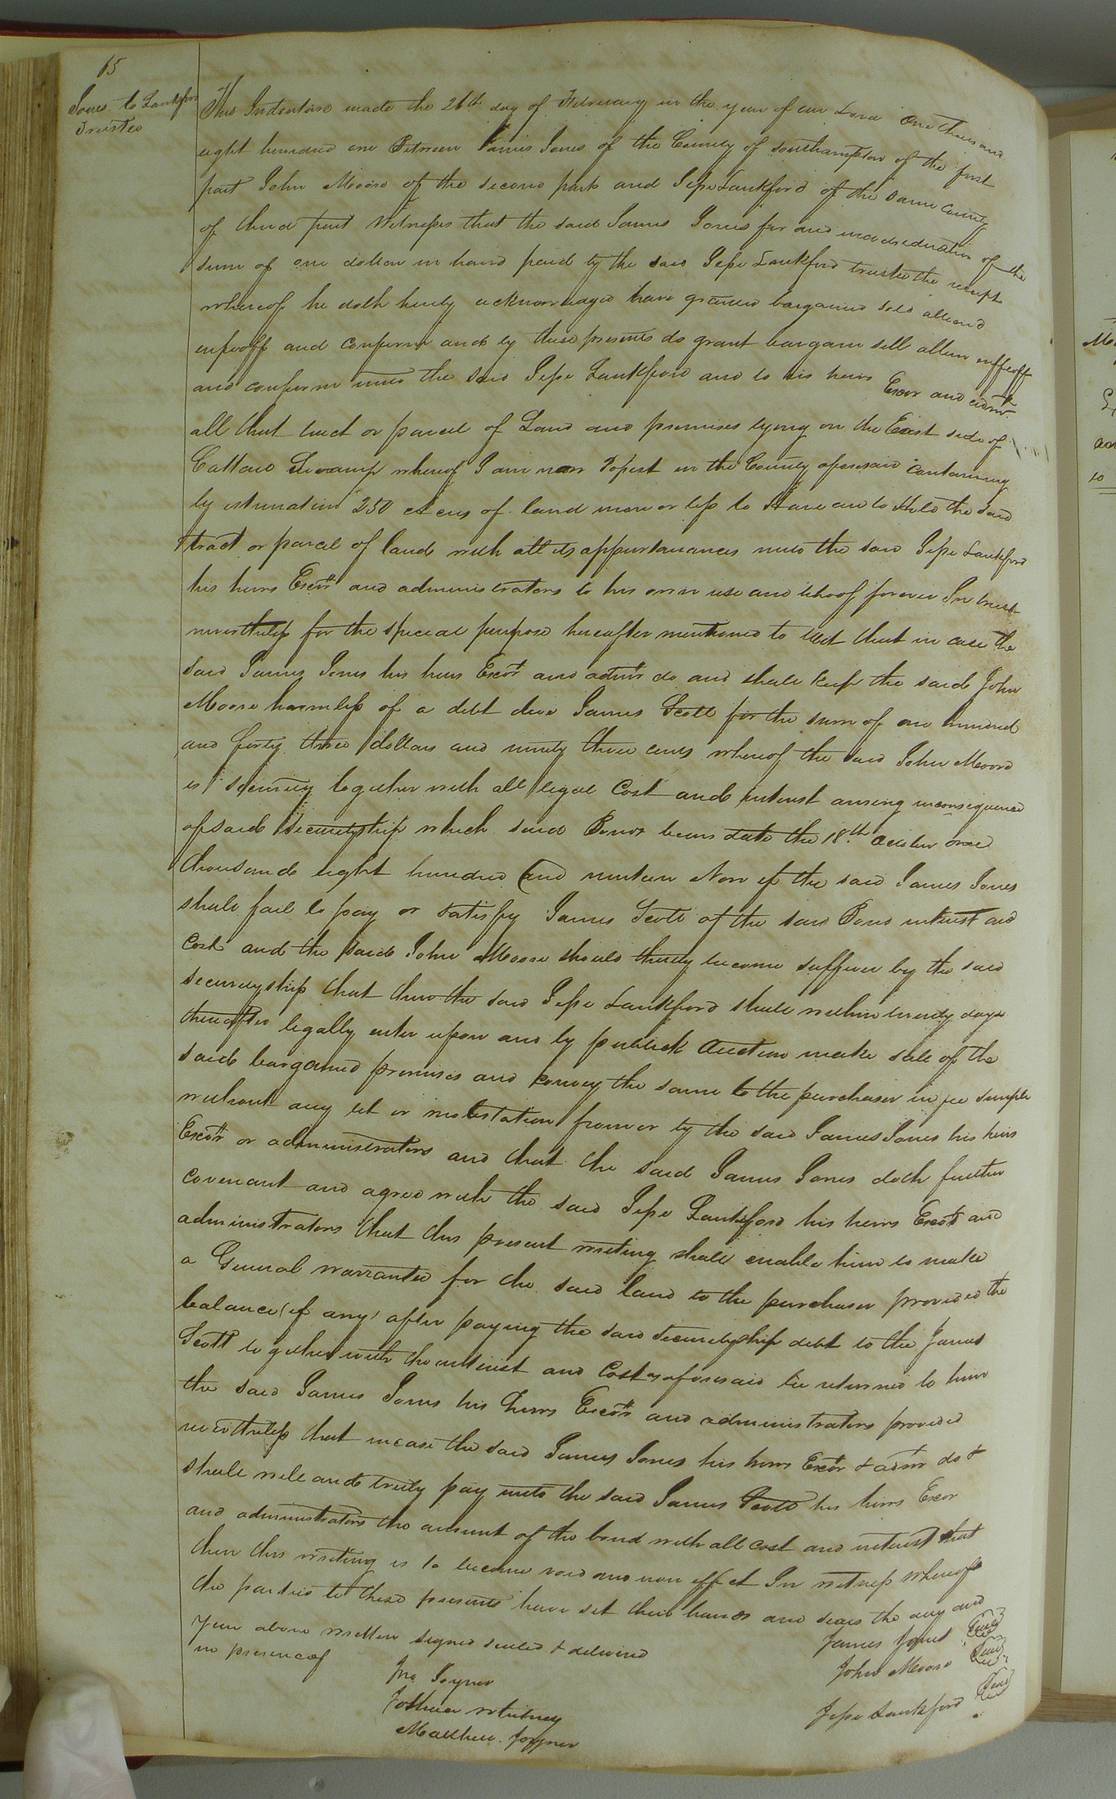 65
Jones to Lankford
Trustee
This Indenture made the 26th day of February in the year of our Lord One thousand
eight hundred one Between James Jones of the County of Southampton of the first
part John Moore of the second part and Jesse Lankford of the same County
of third part Witnesses that the said James Jones for and inconsideration of the
sum of one dollar in hand paid by the said Jesse Lankford trustee the receipt
whereof he doth hereby acknowledge have granted bargained sold aliend
enfeoff and confirm and by these presents do grant bargain sell alien enffeoff
and confirm unto the said Jesse Lankford and to his heirs Exor and admr
all that tract or parcel of Land and premises lying on the East side of
Swamp whereof I am now Possest in the County aforesaid containing
by estimation 250 acres of land more or less to Have and to Hold the said
tract or parcel of land with all its appurtanances unto the said Jesse Lankford
his heirs Exors and administrators to his own use and behoof forever In trust
nevertheless for the special purpose hereafter mentioned to Wit that in case the
said James Jones his heirs Exors and admrs do and shall keep the said John
Moore harmless of a debt due James Scott for the sum of one hundred
and forty three dollars and ninety three cents whereof the said John Moore
is Security together with all legal Cost and interest arising inconsequence
of said Securityship which said Bond bears date the 18th October one
thousand eight hundred and nineteen Now if the said James Jones
shall fail to pay or satisfy James Scott of the said Bond interest and
Cost and the said John Moore should thereby become sufferer by the said
securityship that then the said Jesse Lankford shall within twenty days
thereafter legally enter upon and by publick Auction make sale of the
said bargained premises and convey the same to the purchaser in fee simple
without any let or molestation from or by the said James Jones his heirs
Exors or administrators and that the said James Jones doth further
covenant and agree with the said Jesse Lankford his heirs Exors and
administrators that this present writing shall enable him to make
a General warrantee for the said land to the purchaser provided the
balance (if any) after paying the said securityship debt to the James
Scott together with the interest and Cost as aforesaid be returned to him
the said James Jones his heirs Exors and administrators provided
neverthless that incase the said James Jones his heirs Exors & admr do &
shall well and truly pay unto the said James Scott his heirs Exor
and administrators the amount of the bond with all cost and interest that
then this writing is to become void and non effect In witness whereof
the parties to these presents have set their hands and seals the day and
Year above written signed sealed & delivered
in presence of
James Jones Seal
John Moore Seal
Jesse Lankford Seal
Jno Joyner
Joshua Whitney
Matthew Joyner